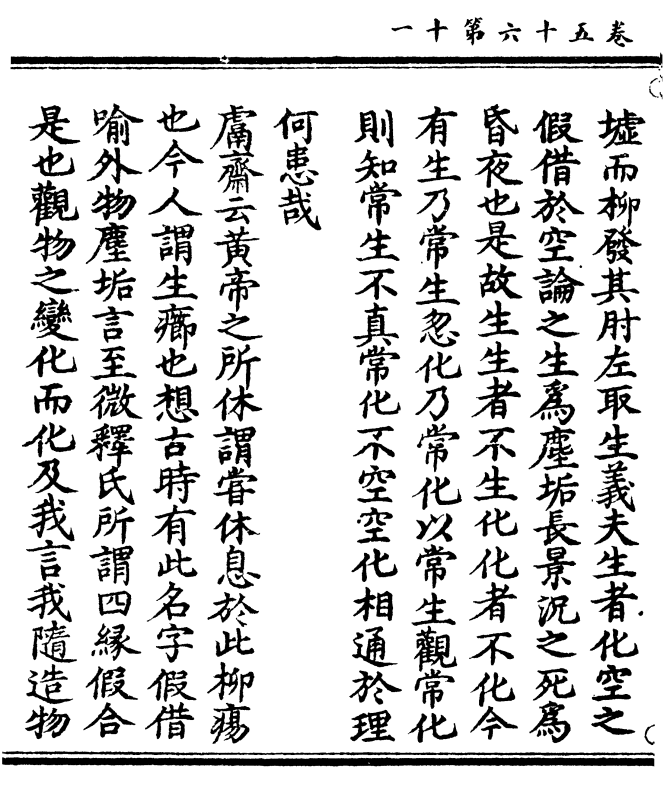 卷五十六第十一
墟而柳發其肘左取生義夫生者化空之
假借於空論之生爲塵垢長景況之死爲
昏夜也是故生生者不生化化者不化今
有生乃常生忽化乃常化以常生觀常化
則知常生不真常化不空空化相通於理
何患哉
鬳齋云黃帝之所休謂嘗休息於此柳瘍
也今人謂生癤也想古時有此名字假借
喻外物塵垢言至微釋氏所謂四緣假合
是也觀物之變化而化及我言我隨造物